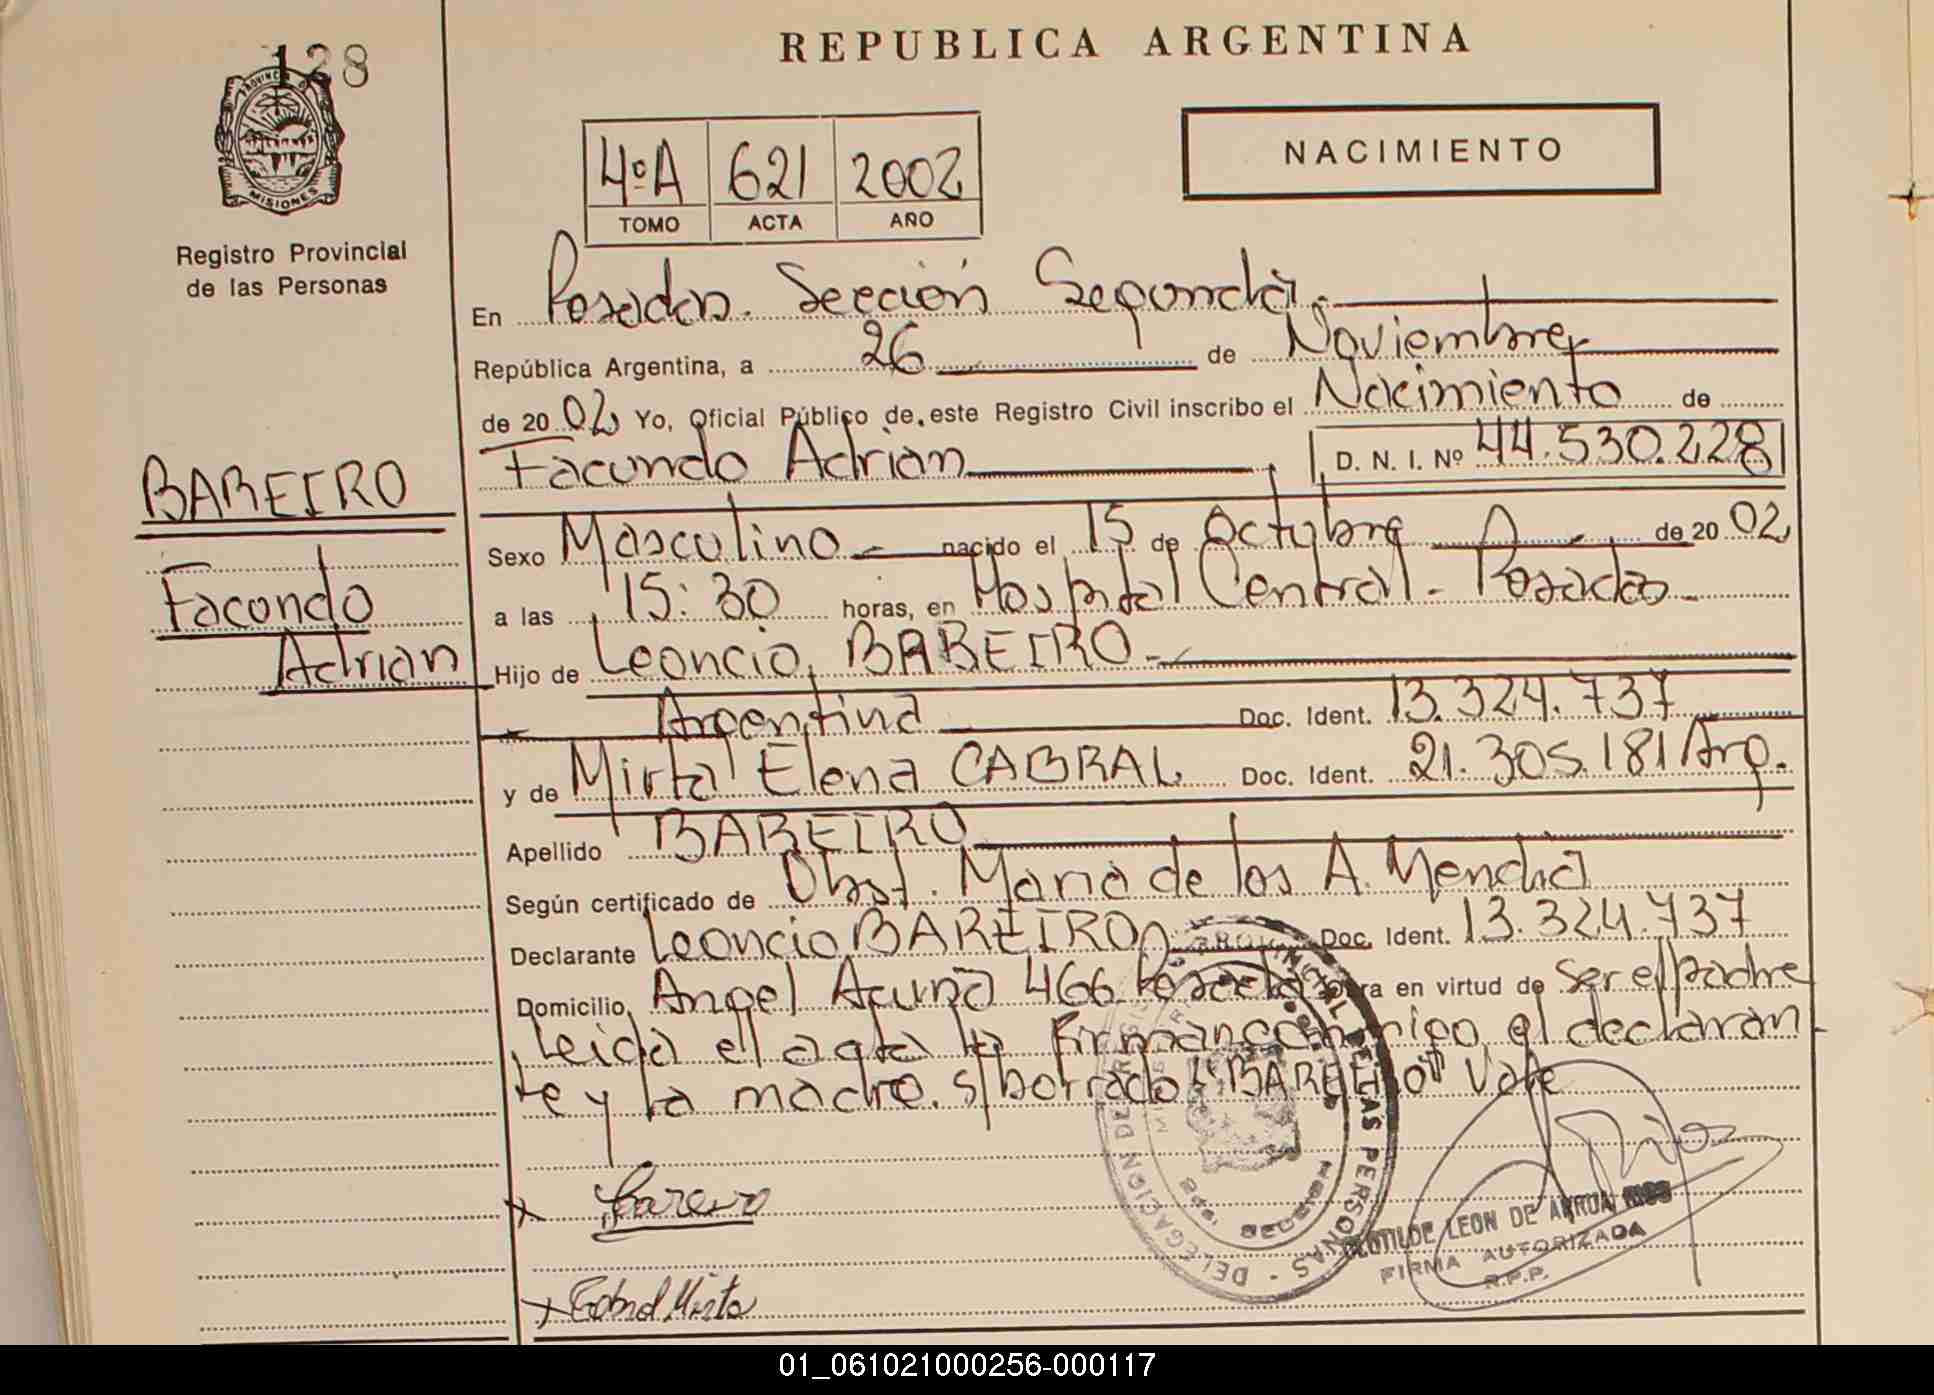 128
REPUBLICA ARGENTINA
PROVINCIA DE MISIONES
Registro Provincial
de las Personas
4ºA 621 2002
TOMO ACTA AÑO
NACIMIENTO
En Posadas. Sección Segunda.
República Argentina, a 26 de Noviembre
de 20 02 Yo, Oficial Público de este Registro Civil inscribo el Nacimiento de
Facundo Adrian D. N. I. Nº 44.530.228
BAREIRO
Facundo
Adrian
Sexo Masculino nacido el 15 de Octubre de 20 02
a las 15:30 horas, en Hospital Central - Posadas
Hijo de Leoncio BAREIRO
Argentina Doc. Ident. 13.324.737
y de Mirta Elena CABRAL Doc. Ident. 21.305.181 Arg.
Apellido BAREIRO
Según certificado de Obst. Maria de los A. Mendia
Declarante Leoncio BAREIRO Doc. Ident. 13.324.737
Domicilio Angel Acuña 466 Posadas obra en virtud de Ser el padre
Leida el acta la firman conmigo el declaran-
te y la madre. s/borrado "BAREIRO" Vale
DELEGACION DEL REGISTRO PROVINCIAL DE LAS PERSONAS
x Bareiro
x Cabral Mirta
CLOTILDE LEON DE ARRUA
FIRMA AUTORIZADA
R.P.P.
01_061021000256-000117